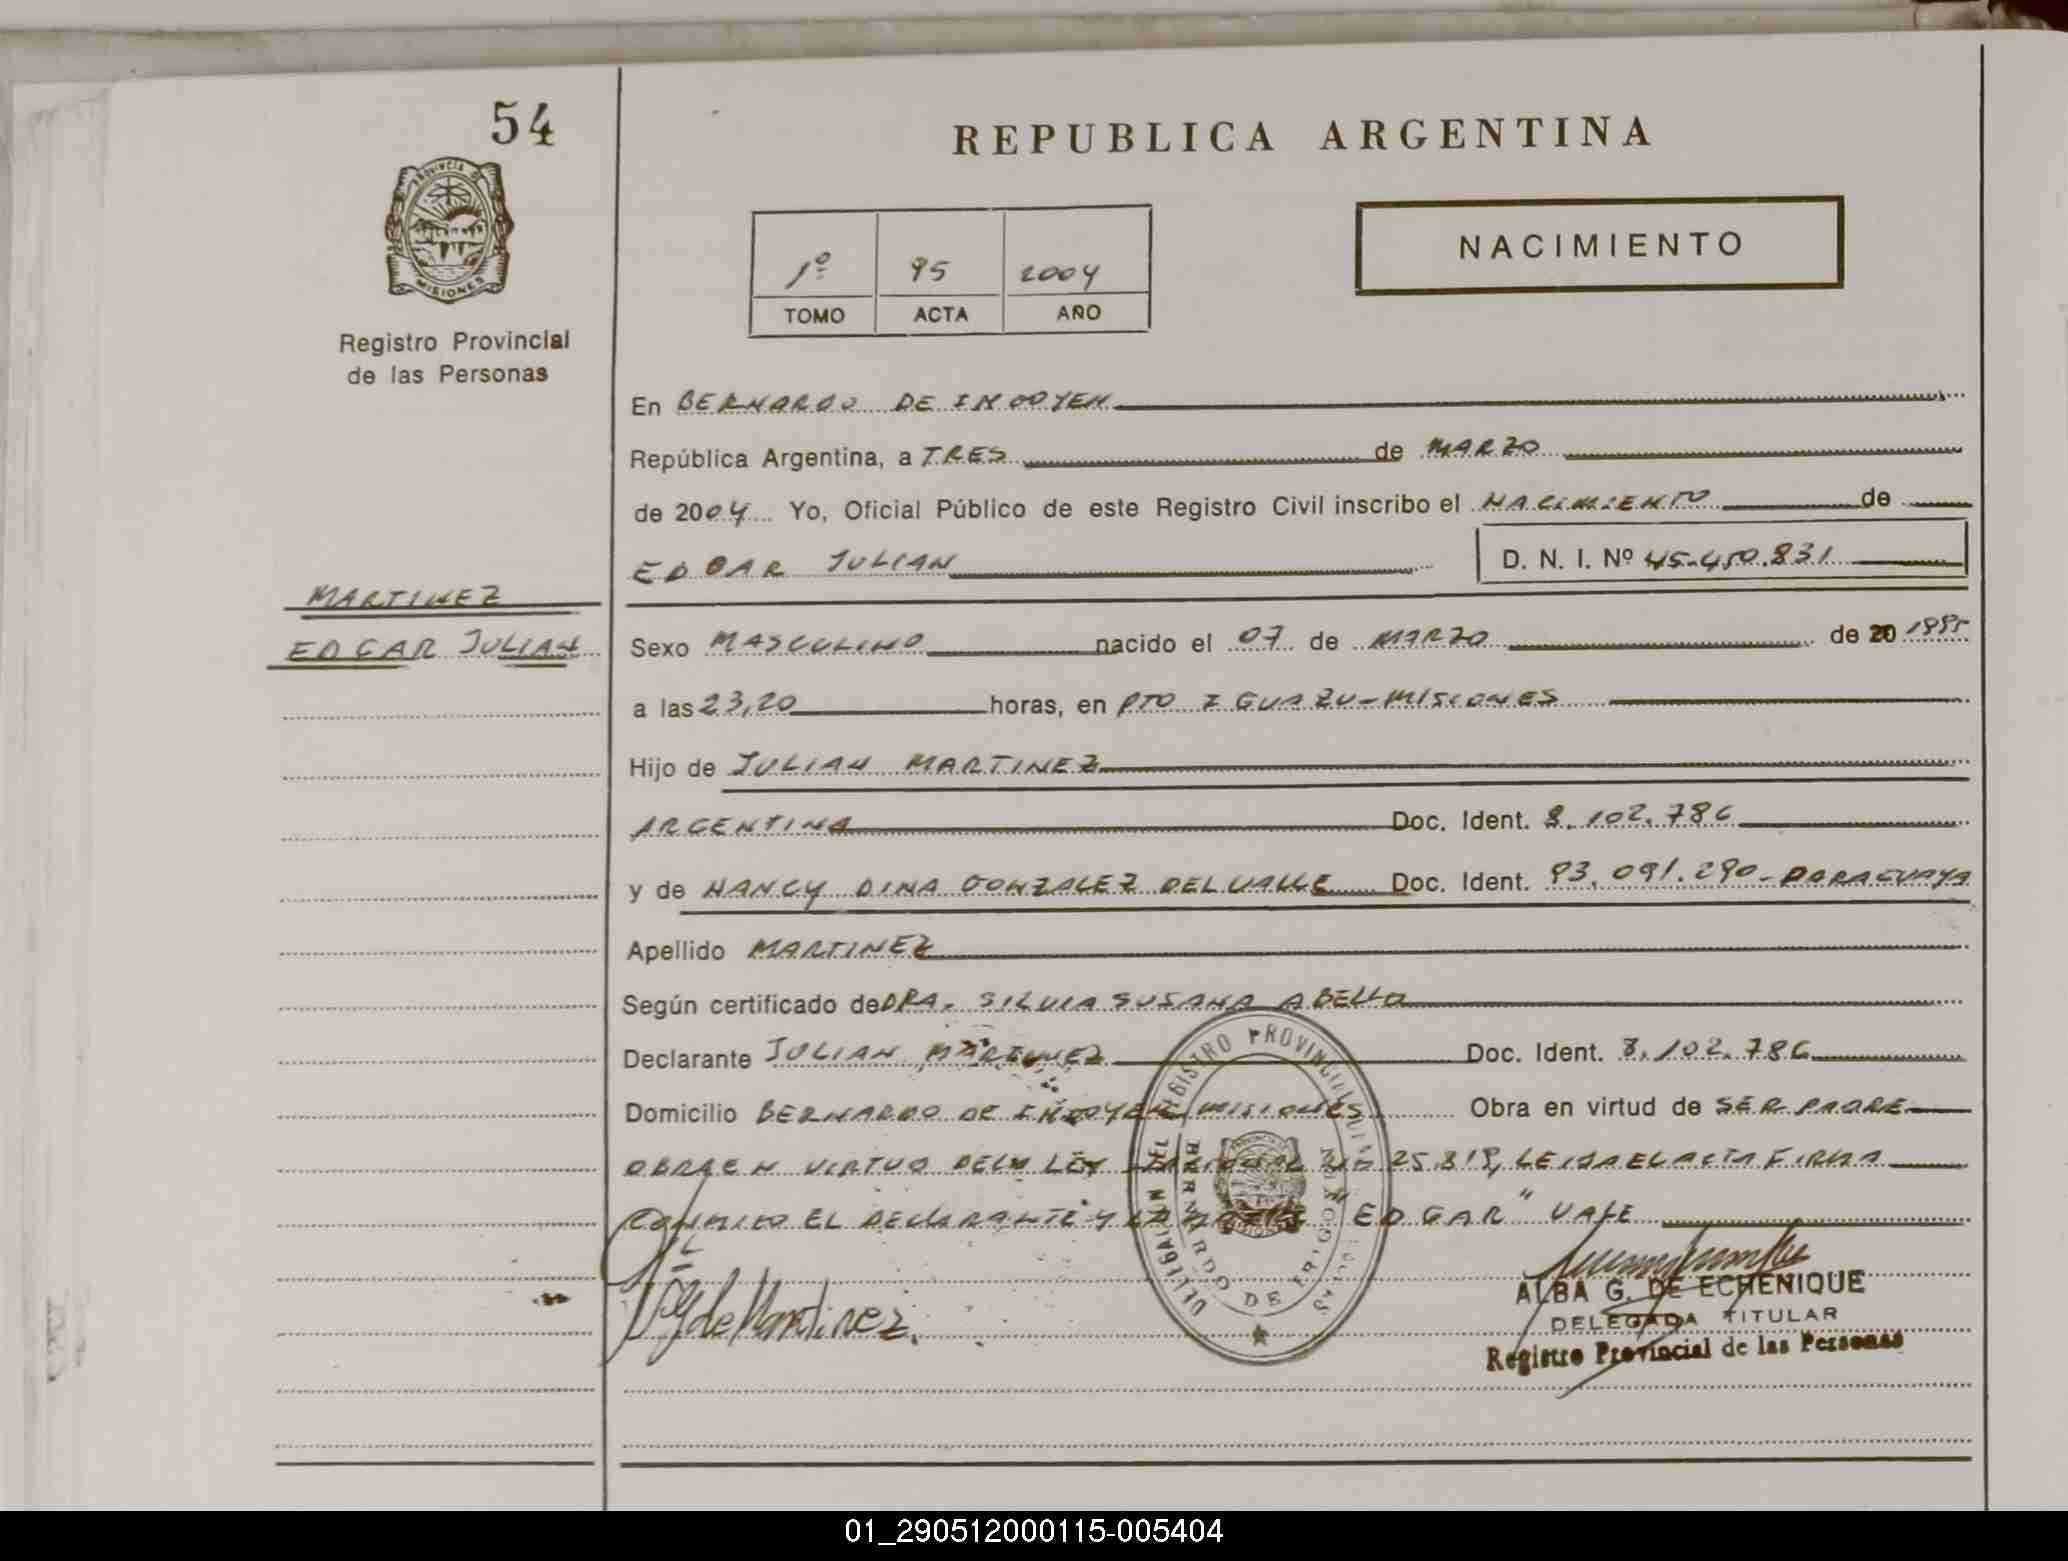 54
PROVINCIA DE
MISIONES
Registro Provincial
de las Personas
REPUBLICA ARGENTINA
NACIMIENTO
1º 95 2004
TOMO ACTA AÑO
En BERNARDO DE IRIGOYEN
República Argentina, a TRES de MARZO
de 2004 Yo, Oficial Público de este Registro Civil inscribo el NACIMIENTO de
EDGAR JULIAN D. N. I. Nº 45.450.831
MARTINEZ
EDGAR JULIAN
Sexo MASCULINO nacido el 07 de MARZO de 20 1995
a las 23,20 horas, en PTO IGUAZU-MISIONES
Hijo de JULIAN MARTINEZ
ARGENTINA Doc. Ident. 8.102.786
y de NANCY DINA GONZALEZ DEL VALLE Doc. Ident. 93.091.290-PARAGUAYA
Apellido MARTINEZ
Según certificado de DRA. SILVIA SUSANA ABELLO
Declarante JULIAN MARTINEZ Doc. Ident. 8.102.786
Domicilio BERNARDO DE IRIGOYEN MISIONES Obra en virtud de SER PADRE
OBRA EN VIRTUD DE LA LEY NACIONAL Nº 25.819, LEIDA EL ACTA FIRMA
CONMIGO EL DECLARANTE Y LA MADRE "EDGAR" VALE
de Martinez.
REGISTRO PROVINCIAL DE LAS PERSONAS
BERNARDO DE IRIGOYEN
ALBA G. DE ECHENIQUE
DELEGADA TITULAR
Registro Provincial de las Personas
01_290512000115-005404